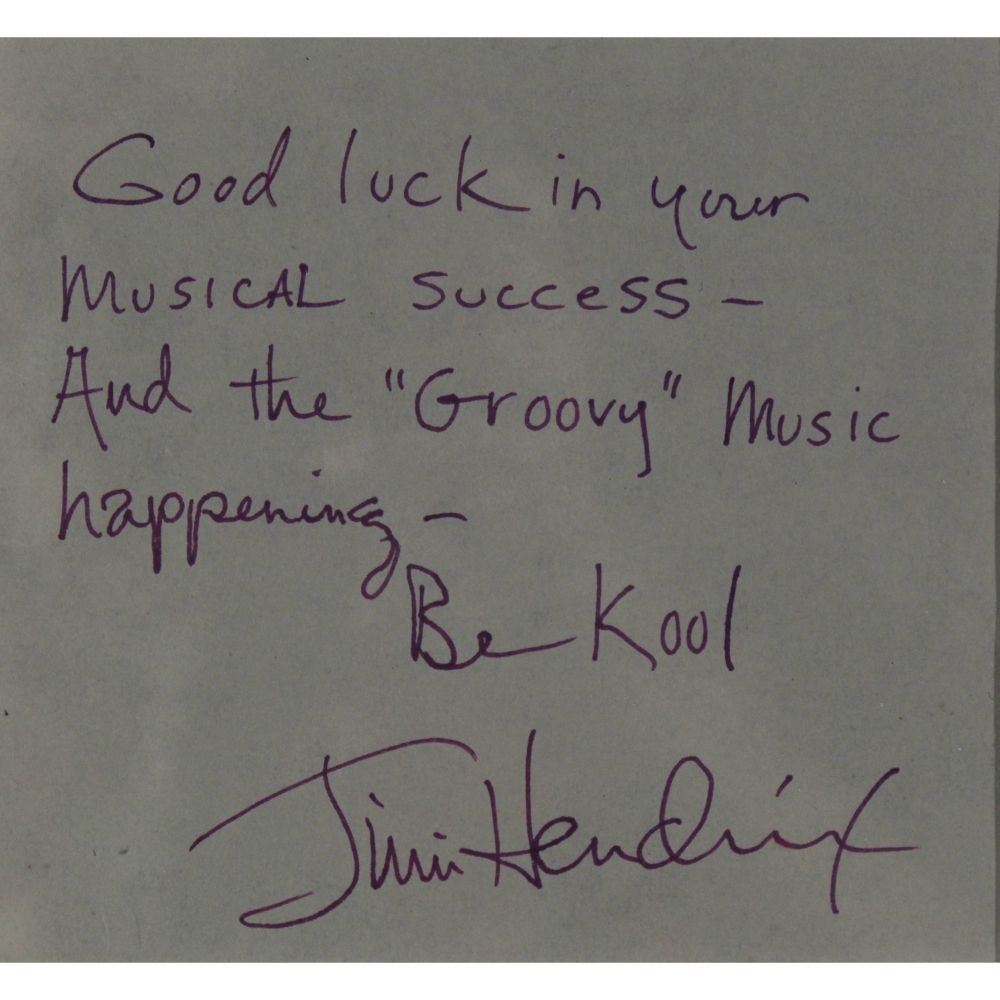 Good luck in your
MUSICAL SUCCESS –
And the "Groovy" Music
happening –
Be Kool
Jimi Hendrix